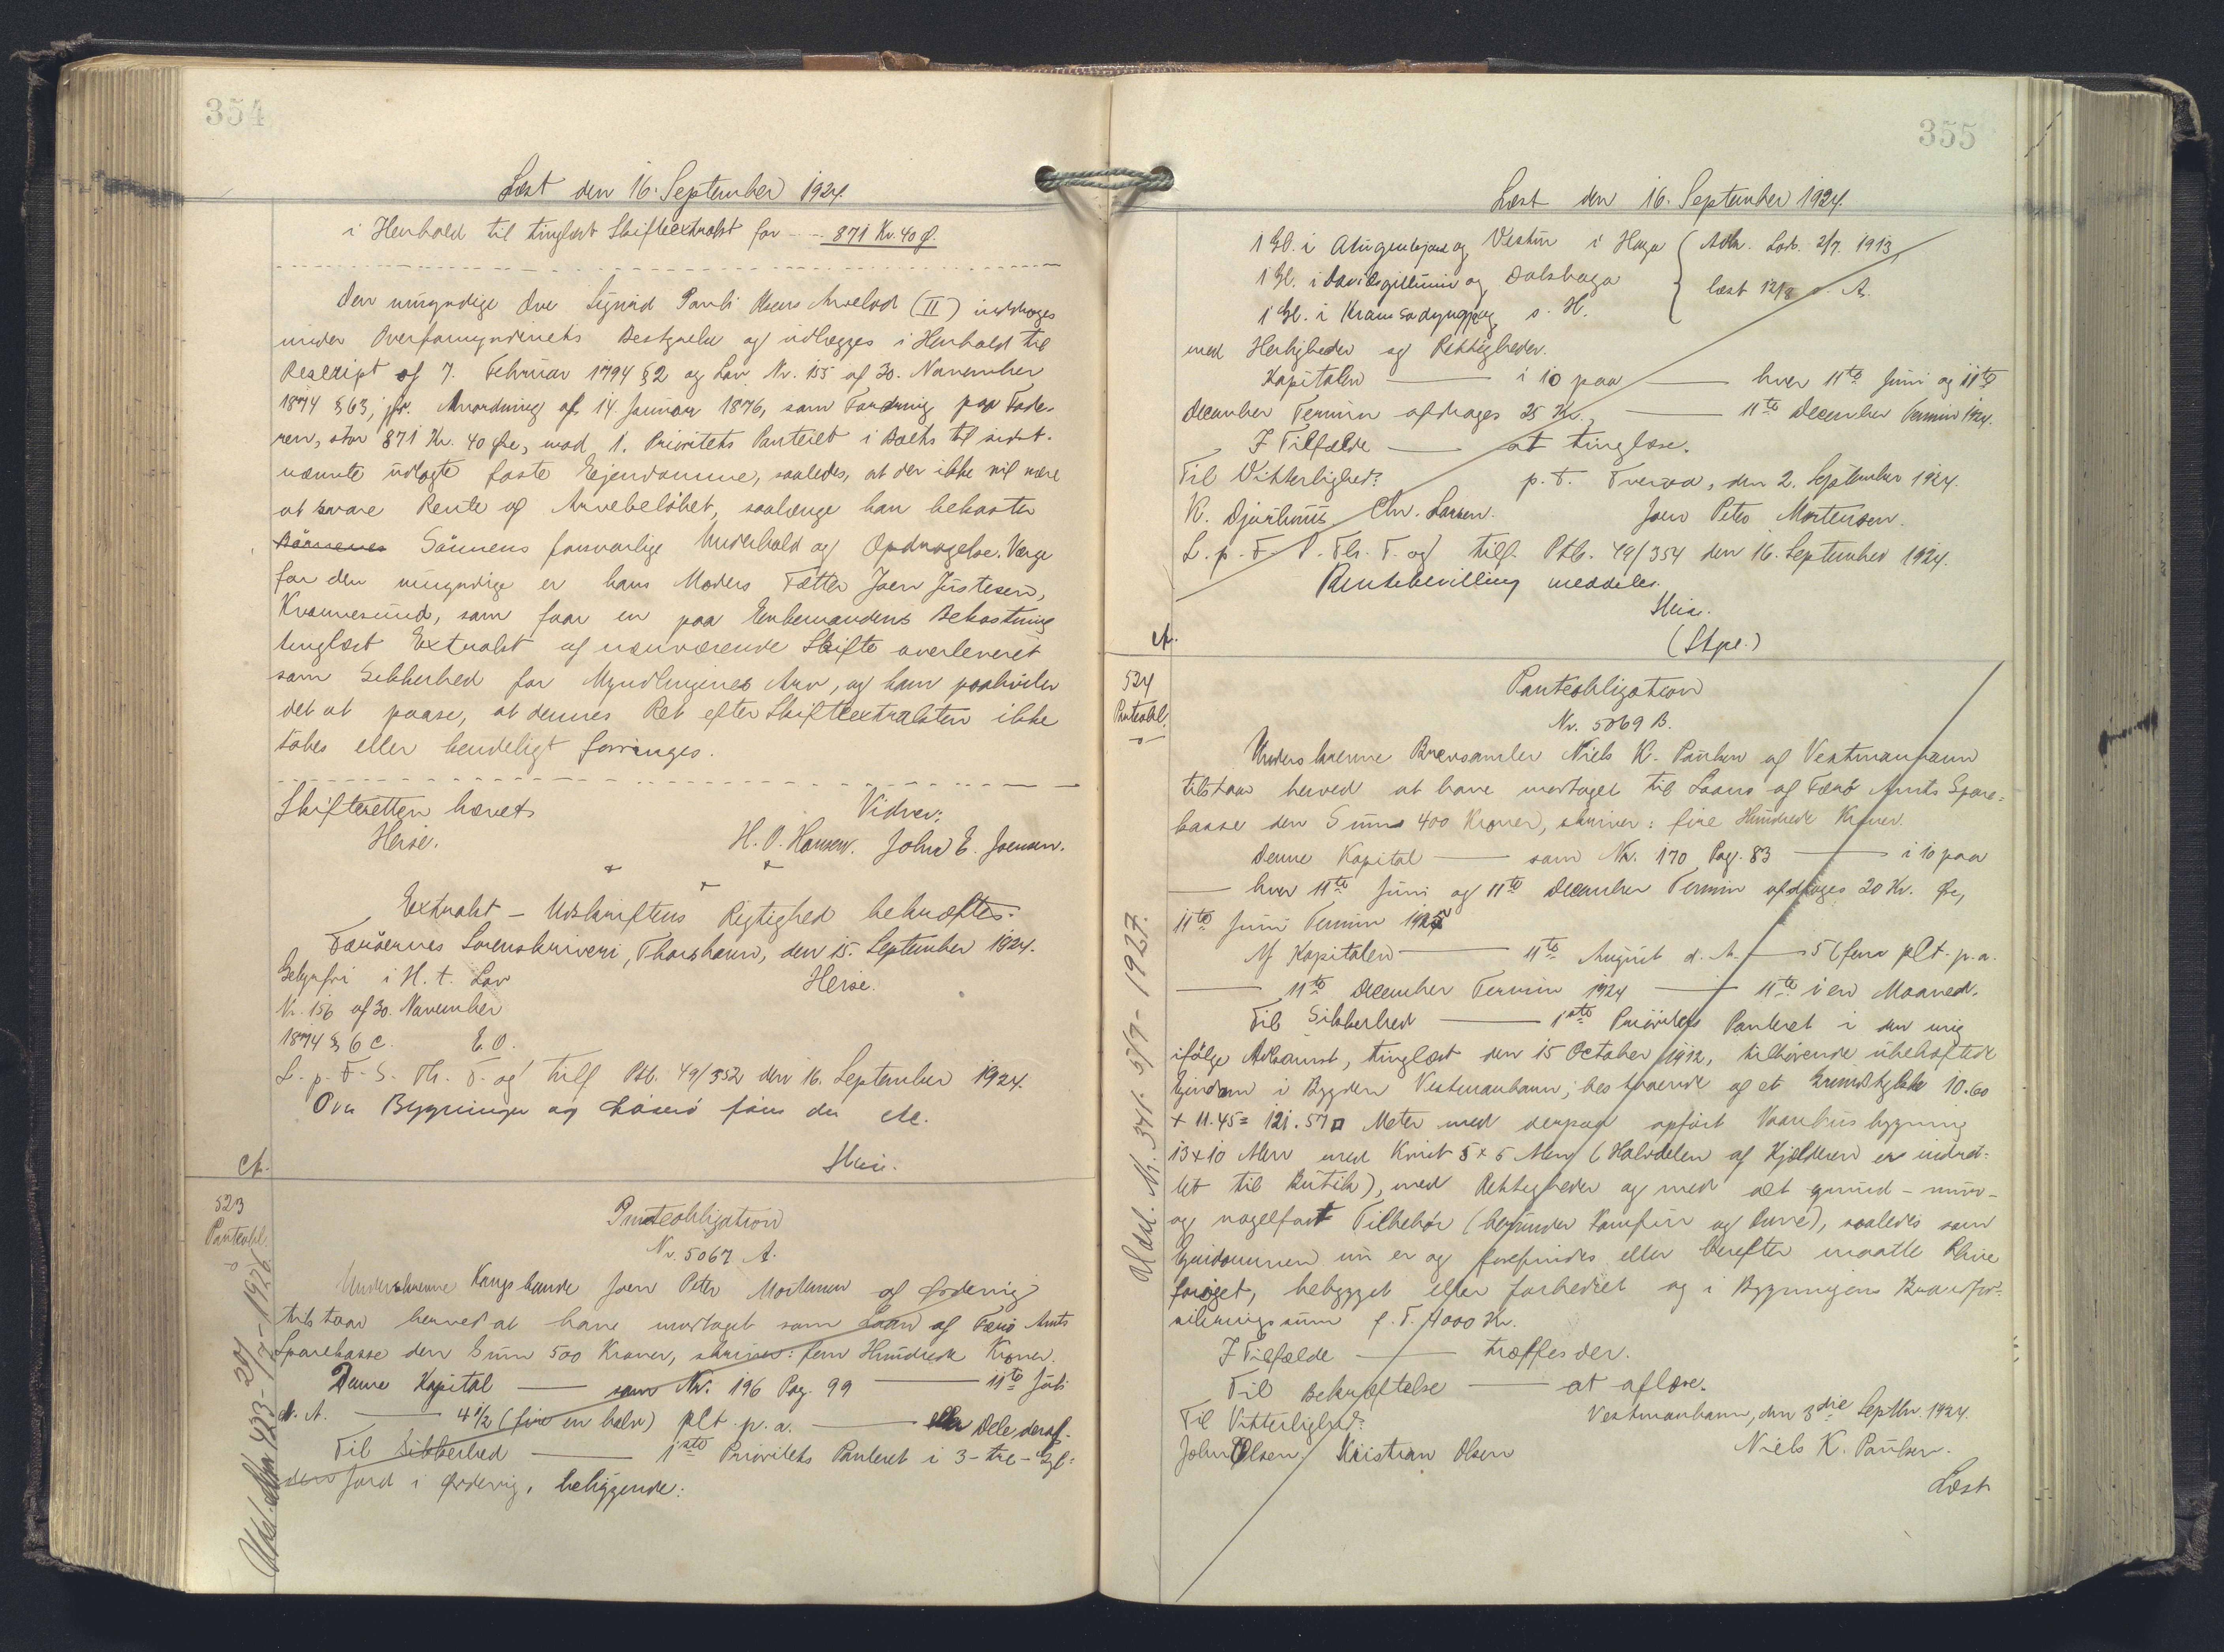 354
Læst den 16. September 1924.
i Henhold til tinglæst Skifteextrakt for -- 871 Kr. 40 Ø.
Den umyndige Ove Sigurd Pauli Arvelod (II) inddrages
under Overformynderiets Bestyrelse og udlægges i Henhold til
Reskript af 7. Februar 1794 § 2 og Lov Nr. 155 af 30. November
1874 § 63, jfr. Anordning af 14. Januar 1876, som Fordring paa Fade-
ren, stor 871 Kr. 40 Øre, mod 1. Prioritets Panteret i Boets til sidst-
nævnte udlagte faste Ejendomme, saaledes, at der ikke vil være
at svare Rente af Arvebeløbet, saalænge han bekoster
Børnenes Sönnens forsvarlige Underhold og Opdragelse. Værge
for den umyndige er hans Moders Fætter Joen Justesen,
Kvannesund, som faar en paa Enkemandens Bekostning
tinglæst Extrakt af nærværende Skifte overleveret
som Sikkerhed for Myndlingens Arv, og ham paahviler
det at paase, at dennes Ret efter Skifteextrakten ikke
tabes eller hendeligt forringes.
Skifteretten hævet. Vidner:
Heise. H. O. Hansen. John E. Joensen.
Extrakt - Udskriftens Rigtighed bekræftes.
Færøernes Sorenskriveri, Thorshavn, den 15. September 1924.
Gebyrfri i H. t. Lov Heise.
Nr. 156 af 30. November
1874 § 6 c. E. O.
L. p. F. S. Th. T. og tilf Ptb. 49/352 den 16. September 1924.
Ova Bygninger og Løsøre etc.
Heise.
ct.
523
Panteobl.
Panteobligation
Nr. 5067 A.
Underskrevne Kongsbonde Joen Peter Mortensen af Ørdevig
tilstaar herved at have modtaget som Laan af Færø Amts
Sparekasse den Sum 500 Kroner, skriver: fem Hundrede Kroner.
Denne Kapital — som Nr. 196 Pag. 99 — 11te Juli
d. A. — 4 1/2 (fire en halv) pCt. p. a. — eller Dele deraf.
Til Sikkerhed — 1ste Prioritets Panteret i 3 - tre - Gyl-
den Jord i Ørdevig, beliggende:
355
Læst den 16. September 1924.
1 Gl. i og Vestur i Haga ( Adk. Sok. 2/7. 1913,
1 Gl. i og Dalshaga læst 12/8 s. A.
1 Gl. i s. H.
med Herligheder og Rettigheder.
Kapitalen — i 10 paa — hver 11te Juni og 11te
December Termin afdrages 25 Kr., — 11te December Termin 1924.
I Tilfælde — at tinglæse.
Til Vitterlighed: p. t. Tveraa, den 2. September 1924.
K. Djurhuus Chr. Larsen. Joen Peter Mortensen.
L. p. F. S. Th. T. og tilf. Ptb. 49/354 den 16. September 1924.
Rentebevilling meddeles.
Heise.
ct. (Stpl.)
524
Panteobl.
Panteobligation
Nr. 5069 B.
Underskrevne Brevsamler Niels K. Poulsen af Vestmanhavn
tilstaar herved at have modtaget til Laans af Færø Amts Spare-
kasse den Sum 400 Kroner, skriver: fire Hundrede Kroner.
Denne Kapital — som Nr. 170 Pag. 83 — i 10 paa
— hver 11te Juni og 11te December Termin afdrages 20 Kr. Øre,
11te Juni Termin 1925
Af Kapitalen — 11te August d. A. — 5 (fem pCt. p. a.
— 11te December Termin 1924 — 11te i en Maaned.
Til Sikkerhed — 1ste Prioritets Panteret i den mig
ifølge Adkomst, tinglæst den 15 October 1912, tilhørende ubehæftede
Ejendom i Bygden Vestmanhavn, bestaaende af et Grundstykke 10.60
x 11.45 = 121.57 □ Meter med derpaa opført Vaanhusbygning
13 x 10 Alen med Kvist 5 x 5 Alen (Halvdelen af Kjælderen er indret-
tet til Butik), med Rettigheder og med alt grund - mur -
og nagelfast Tilbehør (herunder Komfur og Ovne), saaledes som
Ejendommen nu er og forefindes eller herefter maatte blive
foröget, bebygget eller forbedret og i Bygningens Brandfor-
sikringssum p. T. 4000 Kr.
I Tilfælde — træffes der.
Til Bekræftelse — at aflæse.
Til Vitterlighed: Vestmanhavn, den 3die Septbr. 1924.
John Olsen, Kristian Olsen Niels K. Poulsen.
Læst
Udsl. Nr. 341. 5/7 - 1927.